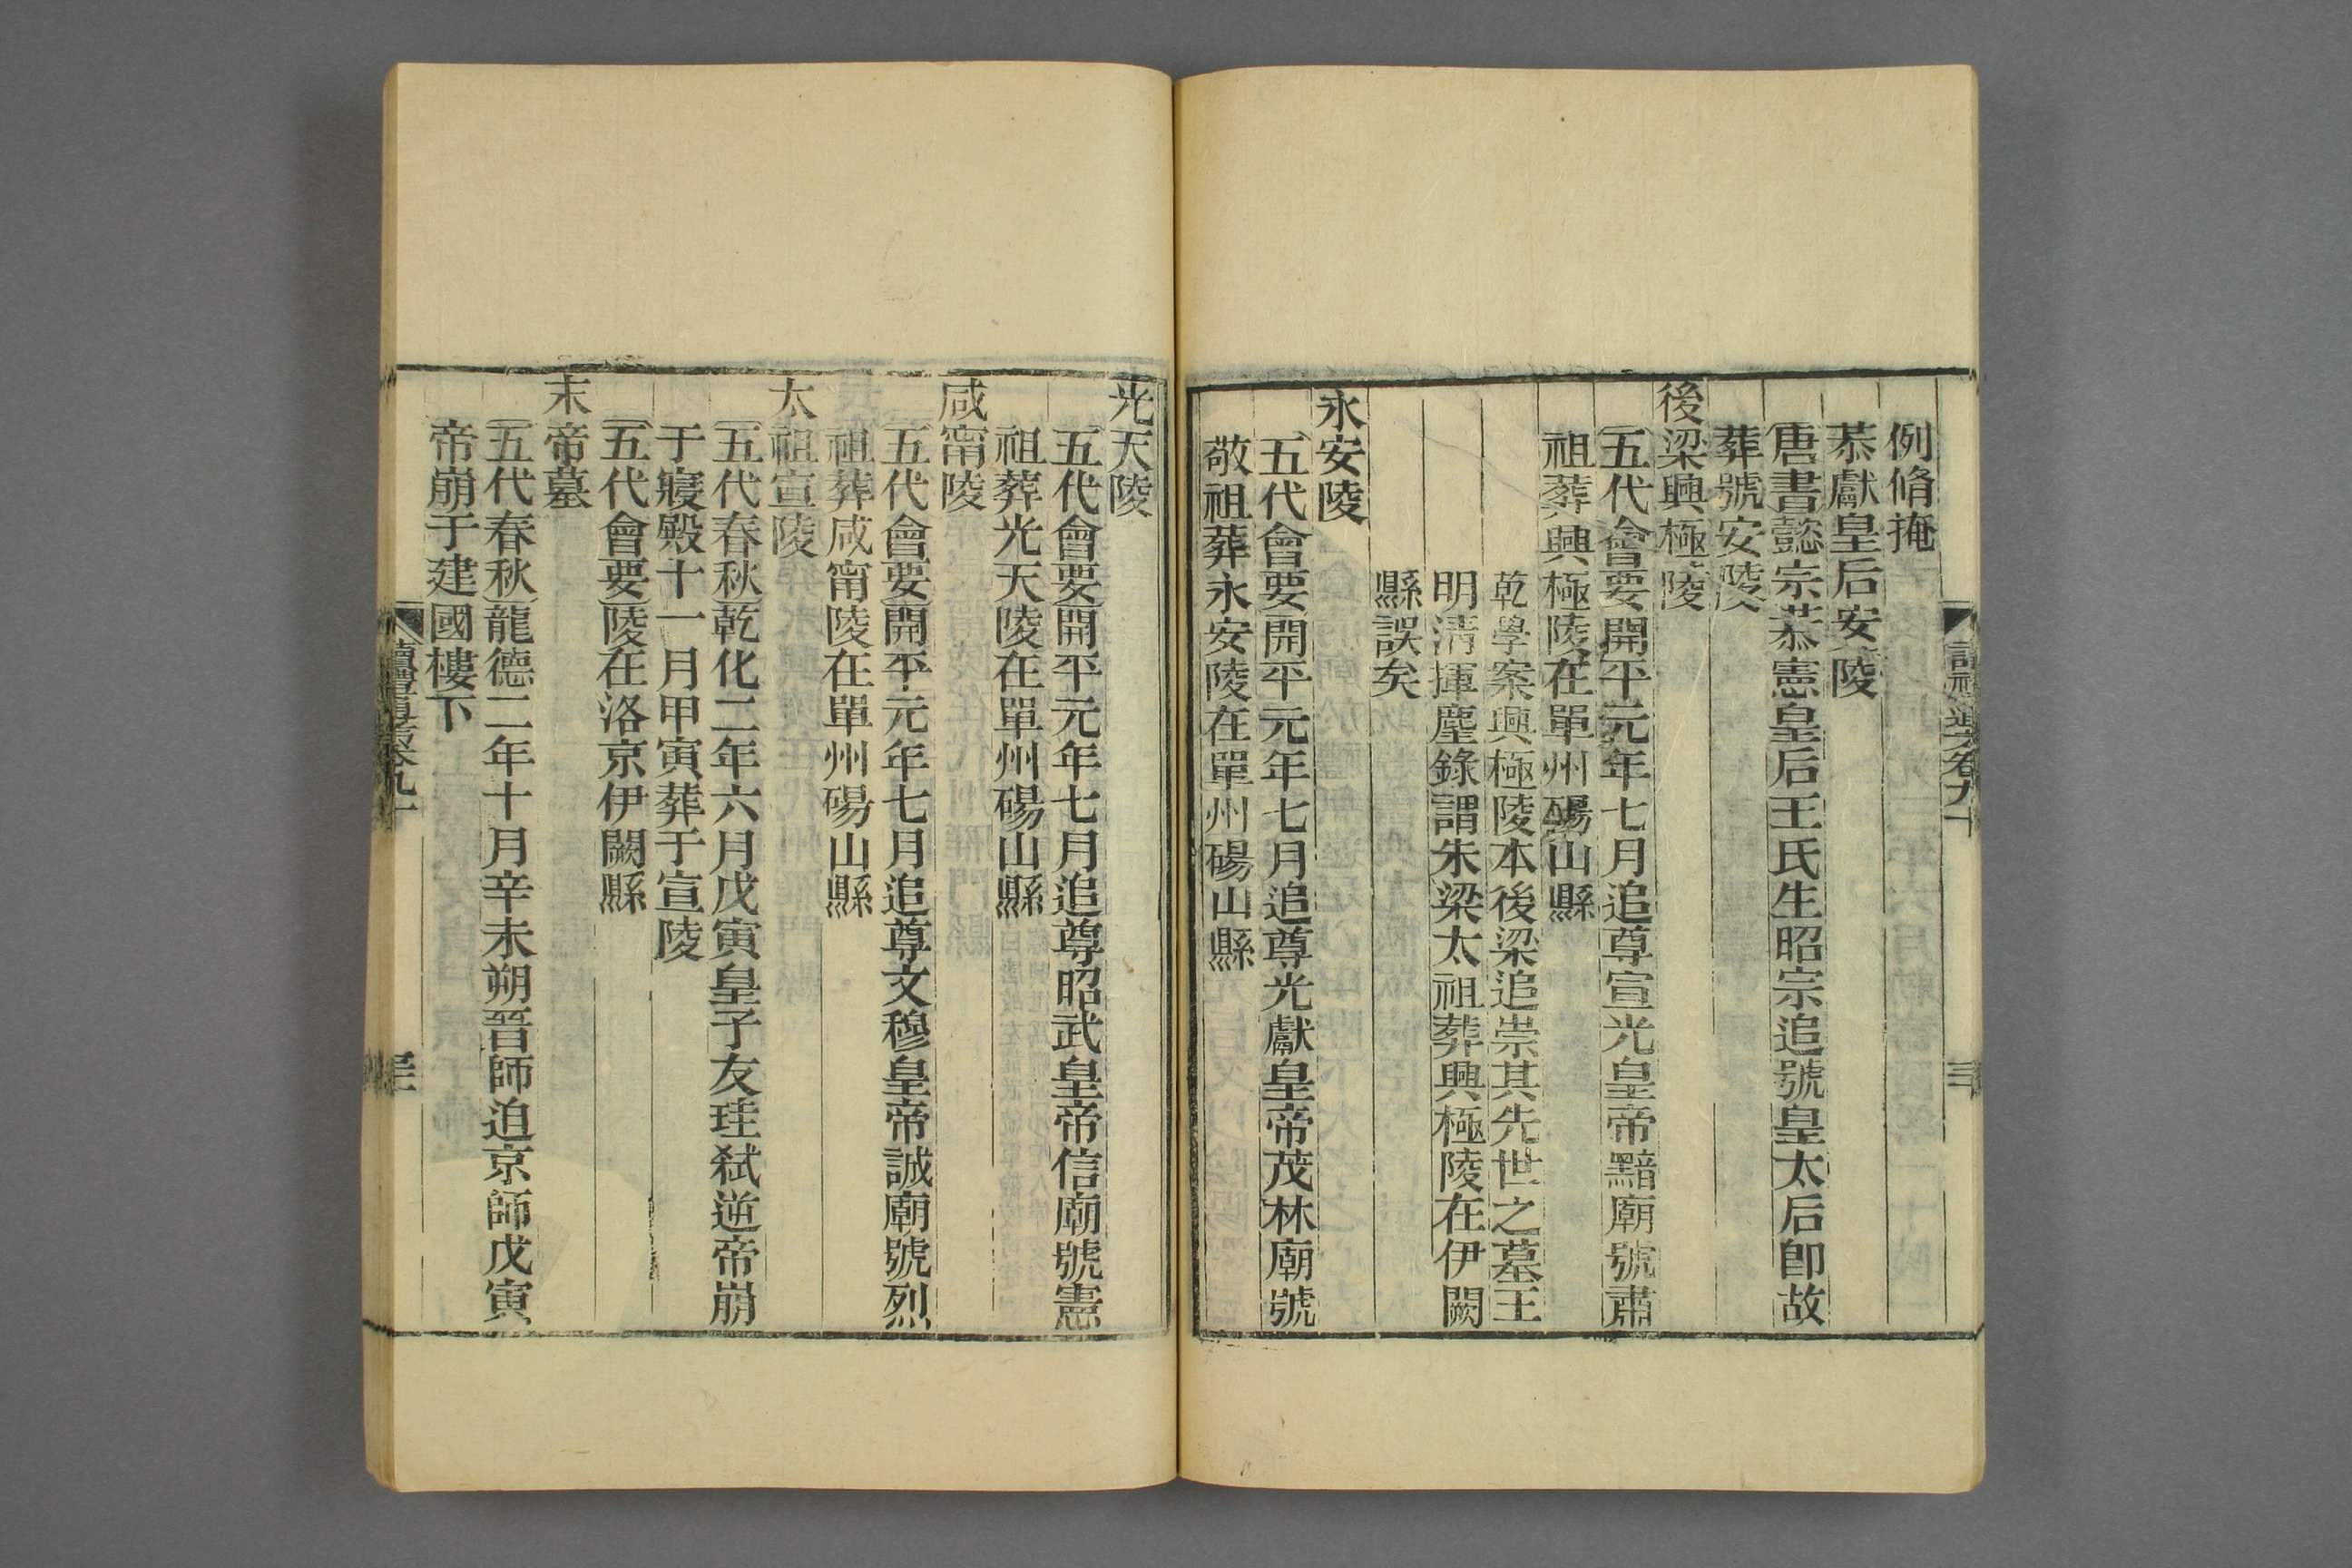 例脩掩
恭獻皇后安陵
唐書懿宗恭憲皇后王氏生昭宗追號皇太后卽故
葬號安陵
後梁興極陵
五代會要開平元年七月追尊宣光皇帝黯廟號肅
祖葬興極陵在單州碭山縣
乾學案興極陵本後梁追崇其先世之墓王
明淸揮麈錄謂朱梁太祖葬興極陵在伊闕
縣誤矣
永安陵
五代會要開平元年七月追尊光獻皇帝茂林廟號
敬祖葬永安陵在單州碭山縣
光天陵
五代會要開平元年七月追尊昭武皇帝信廟號憲
祖葬光天陵在單州碭山縣
咸甯陵
五代會要開平元年七月追尊文穆皇帝誠廟號烈
祖葬咸甯陵在單州碭山縣
太祖宣陵
五代春秋乾化二年六月戊寅皇子友珪弑逆帝崩
于寢殿十一月甲寅葬于宣陵
五代會要陵在洛京伊闕縣
末帝墓
五代春秋龍德二年十月辛未朔晉師迫京師戊寅
帝崩于建國樓下